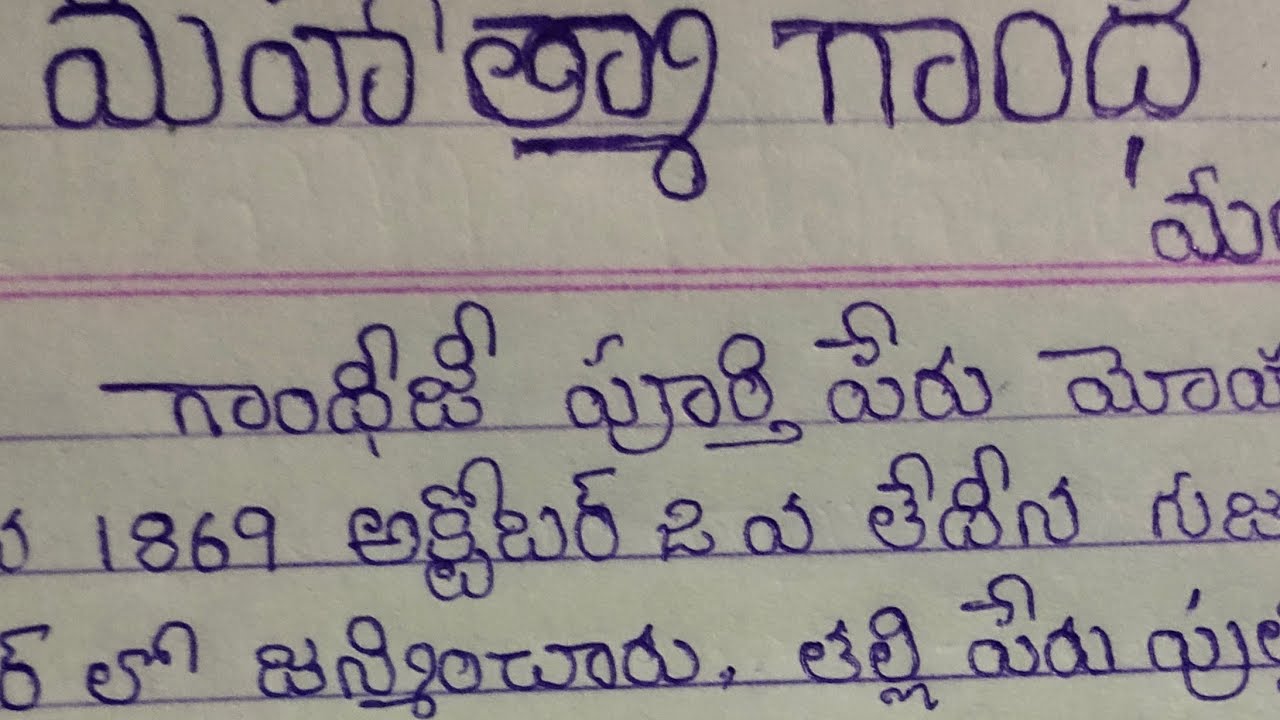 మహాత్మా గాంధ
మే
గాంధీజీ పూర్తి పేరు మోహ
1869 అక్టోబర్ 2 వ తేదీన గుజ
ర్ లో జన్మించారు. తల్లి పేరు పుత